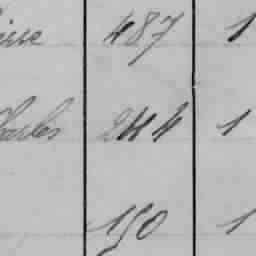 487 1
harles 244 1
150 1